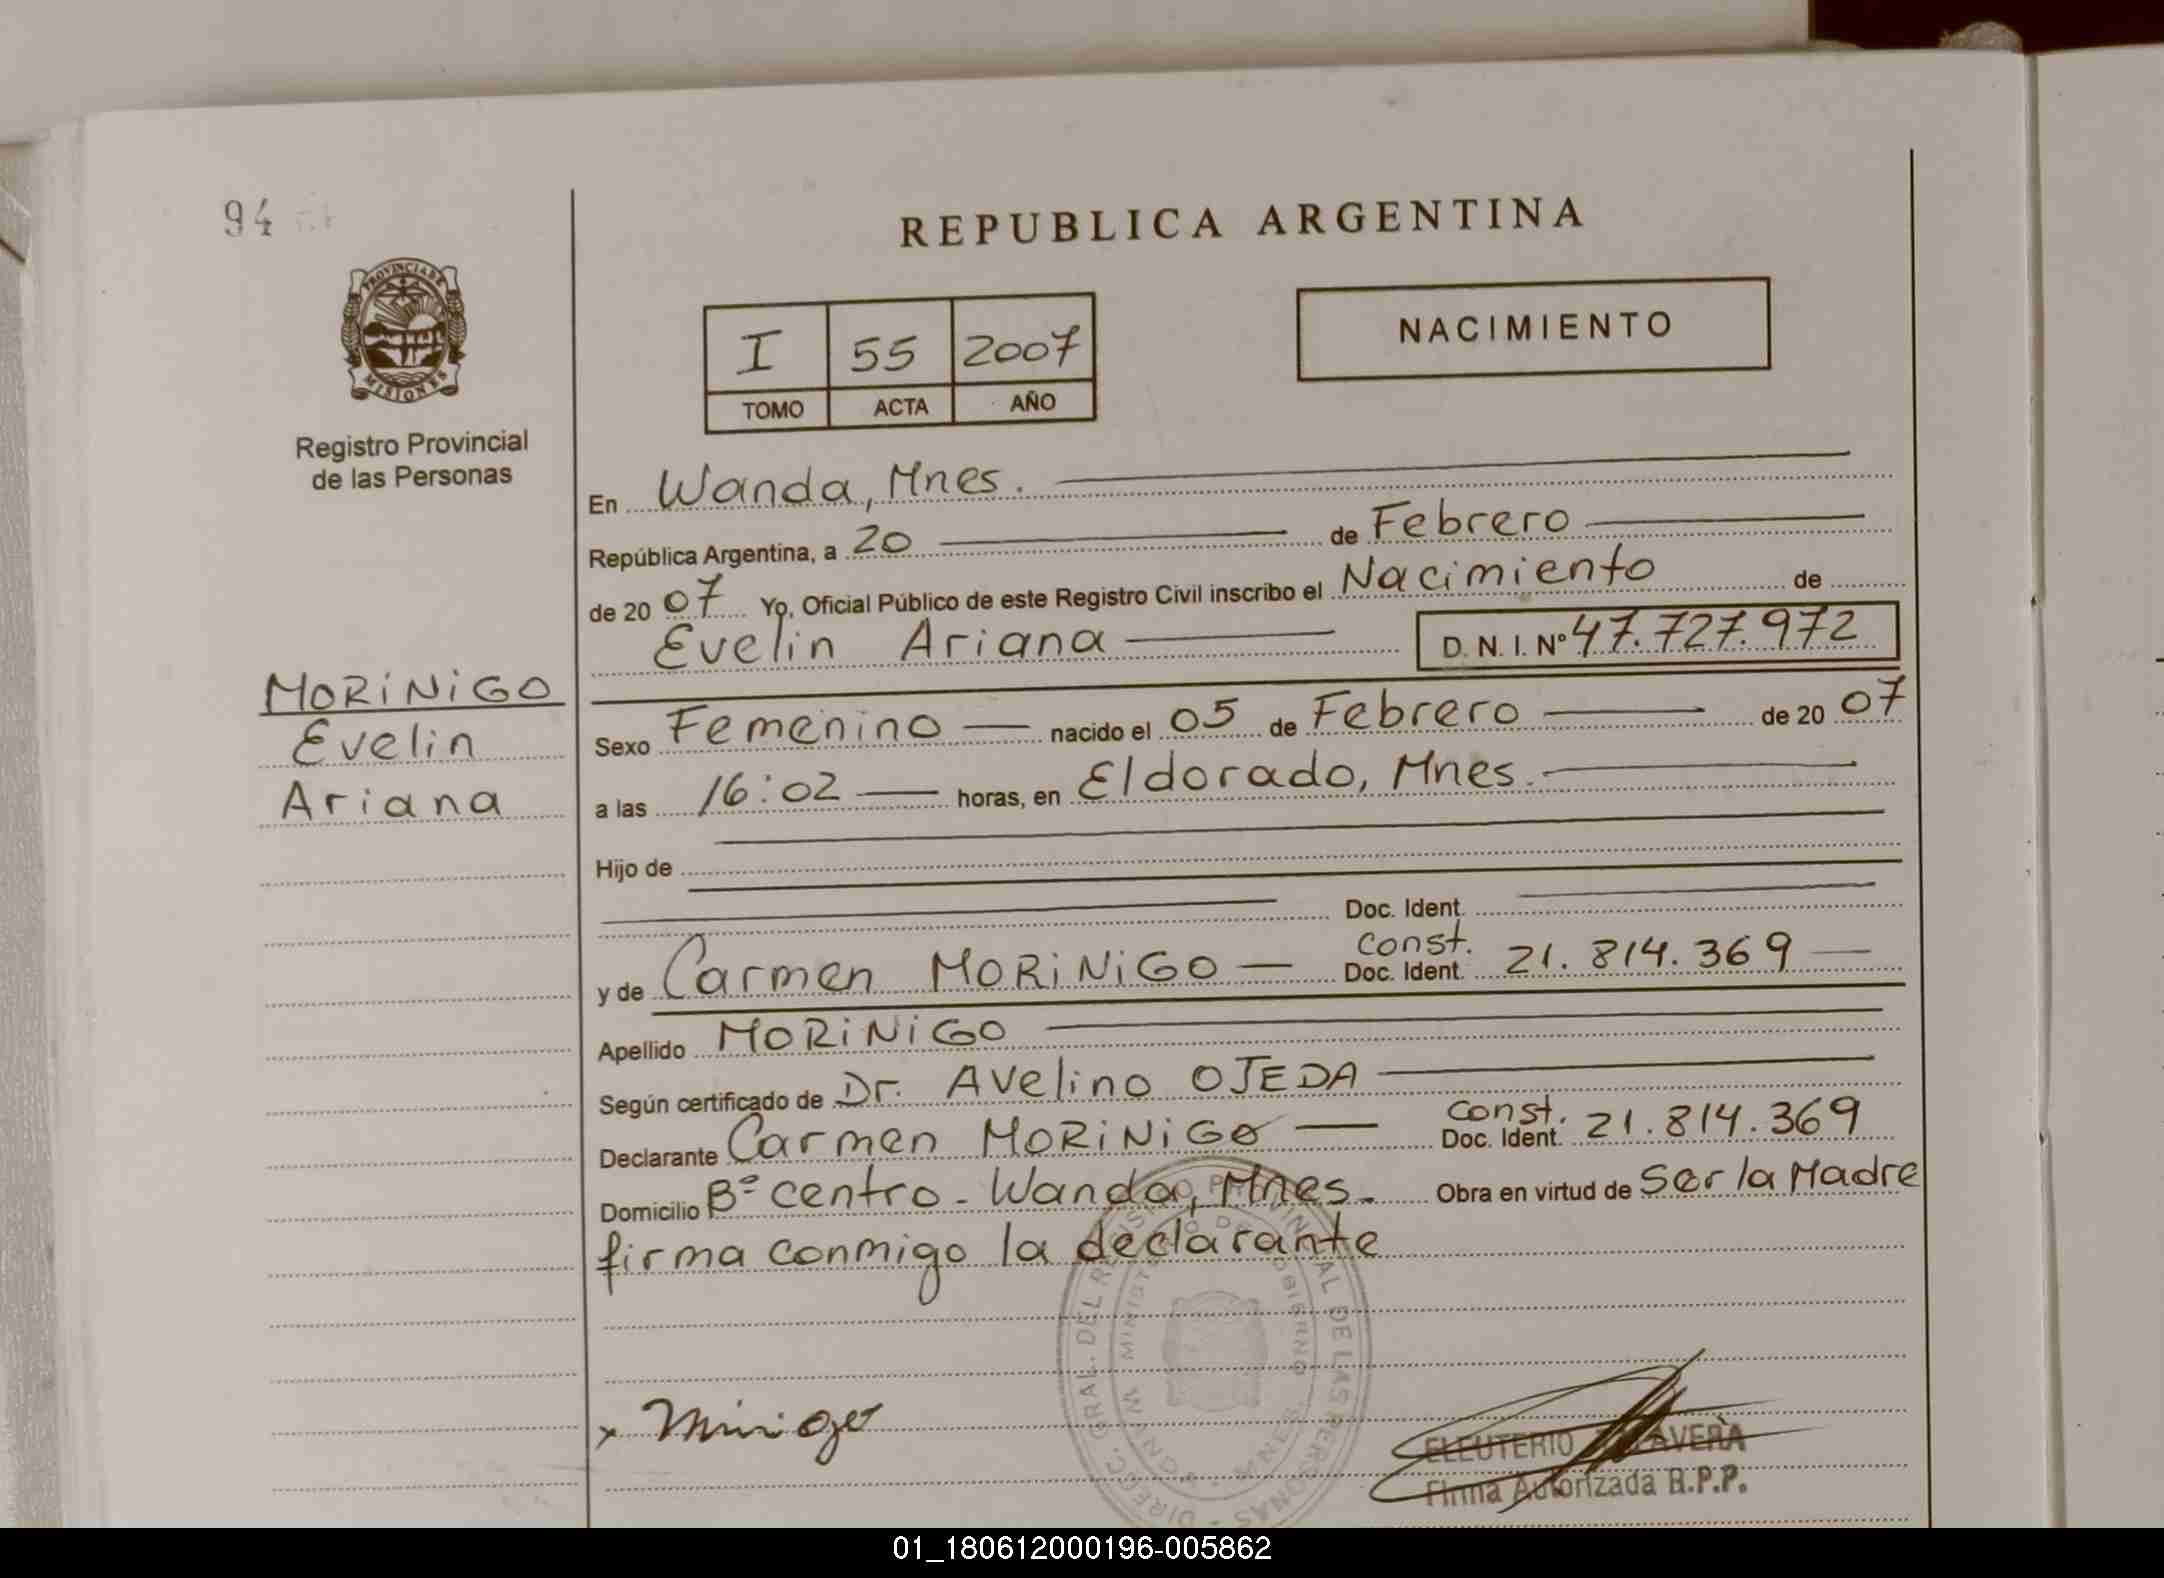 94
PROVINCIA DE
MISIONES
Registro Provincial
de las Personas
MORINIGO
Evelin
Ariana
REPUBLICA ARGENTINA
I 55 2007
TOMO ACTA AÑO
NACIMIENTO
En Wanda, Mnes.
República Argentina, a 20 de Febrero
de 20 07 Yo, Oficial Público de este Registro Civil inscribo el Nacimiento de
Evelin Ariana D. N. I. Nº 47.727.972
Sexo Femenino nacido el 05 de Febrero de 20 07
a las 16:02 horas, en Eldorado, Mnes.
Hijo de
Doc. Ident.
y de Carmen MORINIGO Const. Doc. Ident. 21.814.369
Apellido MORINIGO
Según certificado de Dr. Avelino OJEDA
Declarante Carmen MORINIGO Const. Doc. Ident. 21.814.369
Domicilio Bº centro - Wanda, Mnes. Obra en virtud de Ser la Madre
firma conmigo la declarante
DIRECC. GRAL. DEL REGISTRO PROVINCIAL DE LAS PERSONAS
MINISTERIO DE GOBIERNO
x
ELEUTERIO
Firma Autorizada R.P.P.
01_180612000196-005862